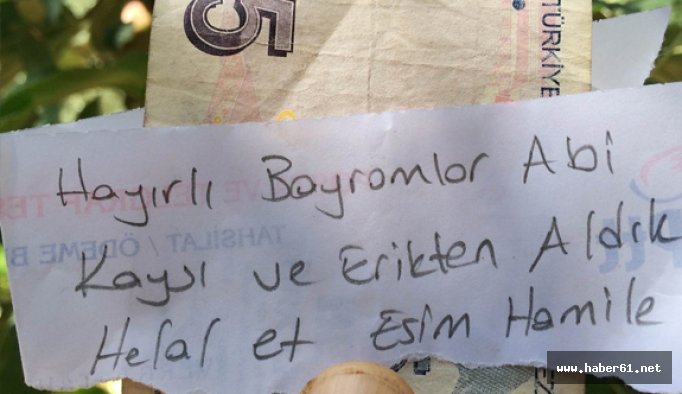 5
TÜRKİYE
Hayırlı Bayramlar Abi
Kaysı ve Erikten Aldık
Helal et Eşim Hamile
TAHSİLAT / ÖDEME B
www.haber61.net